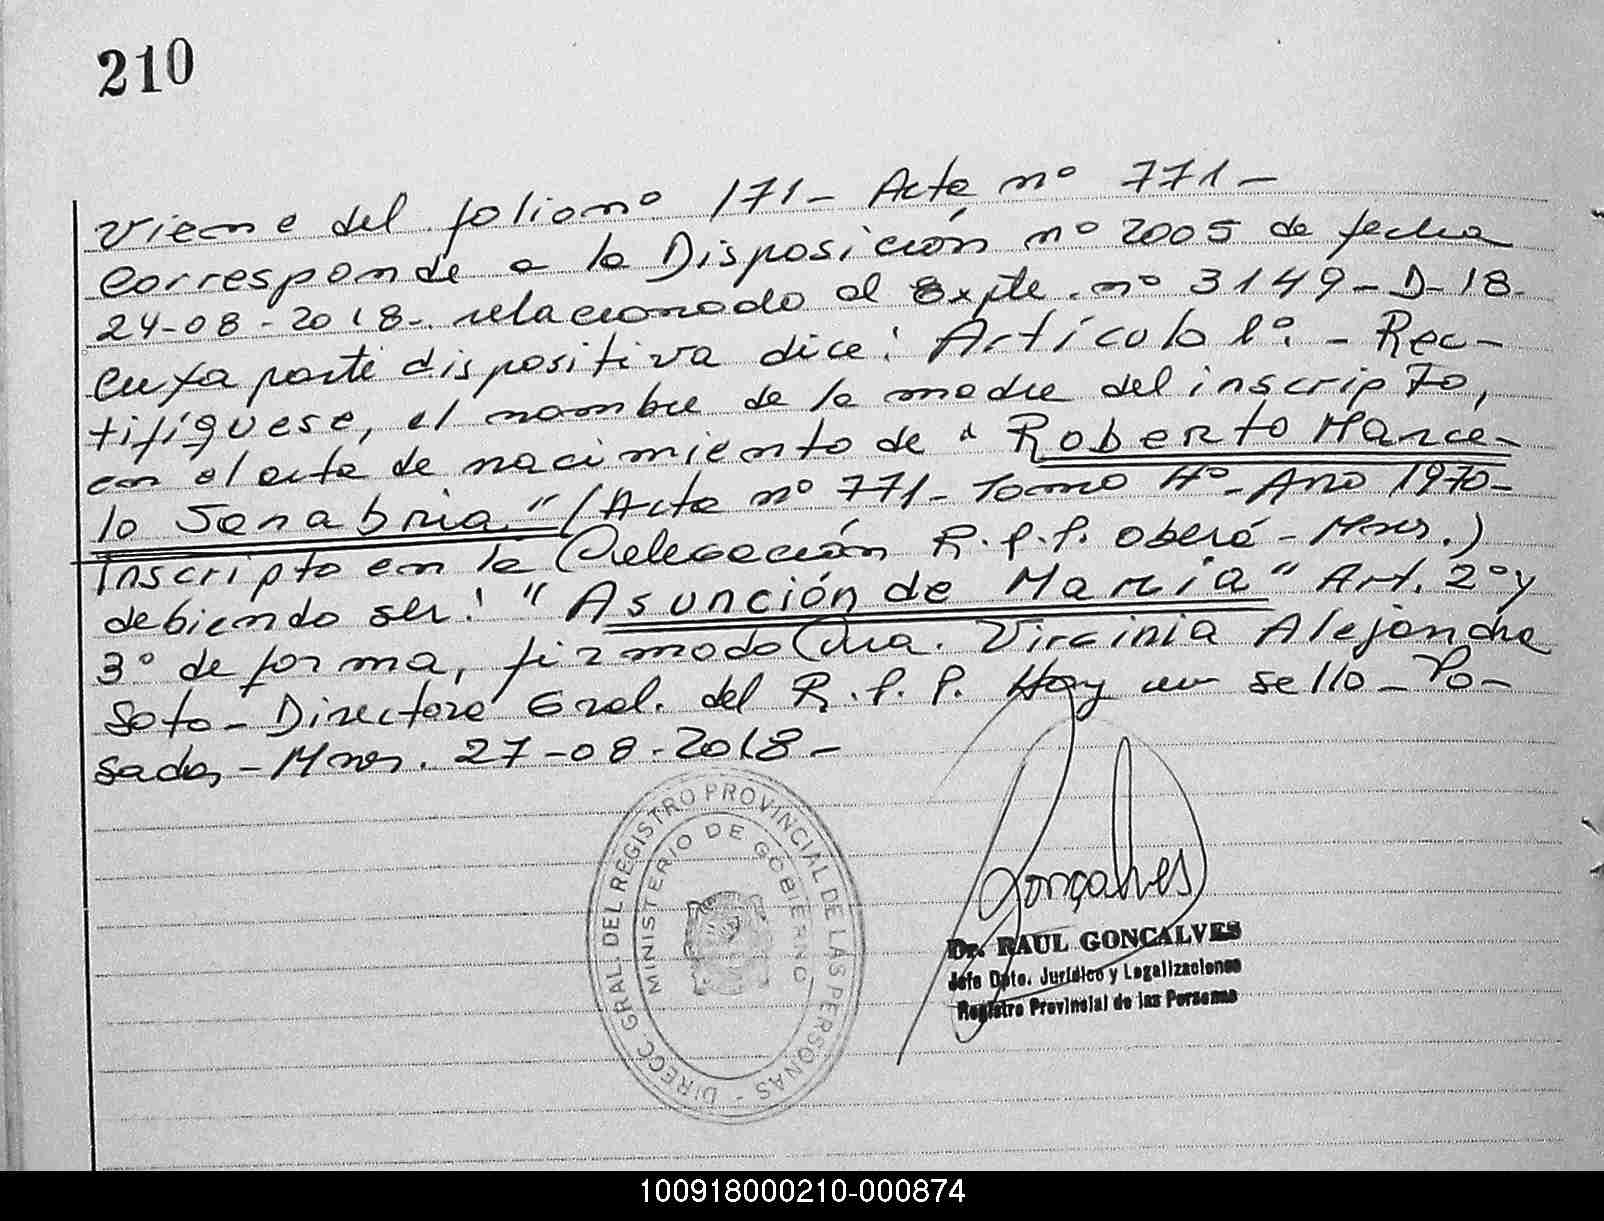 210
Viene del folio nº 171 - Acta nº 771 -
Corresponde a la Disposición nº 2005 de fecha
24-08-2018 - relacionado al Expte. nº 3149-D-18-
cuya parte dispositiva dice: Artículo 1º. - Rec-
tifíquese, el nombre de la madre del inscripto,
en el acta de nacimiento de " Roberto Marce-
lo Sanabria" (Acta nº 771 - Tomo 4º - Año 1970 -
Inscripto en la Delegación R.P.P. Oberá - Mnes.)
debiendo ser: "Asunción de María" Art. 2º y
3º de forma, firmado Dra. Virginia Alejandra
Soto - Directora Gral. del R.P.P. Hay un sello - Po-
sadas - Mnes. 27-08-2018 -
DIRECC. GRAL. DEL REGISTRO PROVINCIAL DE LAS PERSONAS -
MINISTERIO DE GOBIERNO
Gonçalves
Dr. RAUL GONCALVES
Jefe Dpto. Jurídico y Legalizaciones
Registro Provincial de las Personas
100918000210-000874